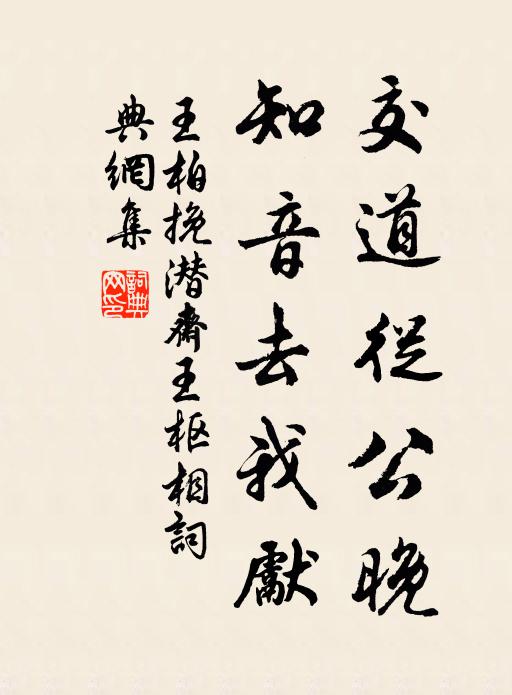 交道從公晚
知音去我獻
王柏挽潜齋王枢相詞
典網集
詞典網印